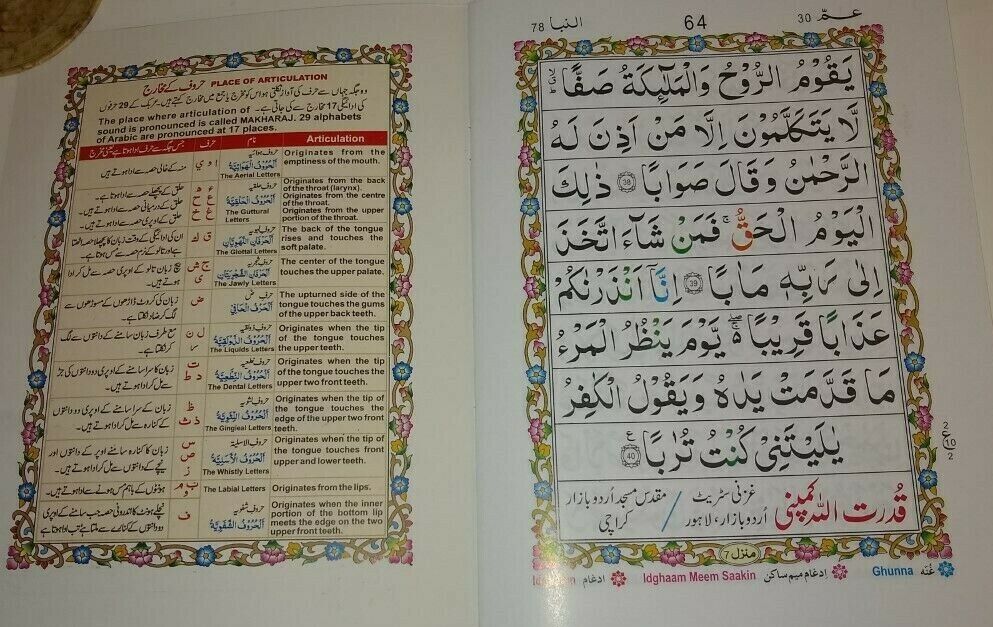 PLACE OF ARTICULATION حروف کے مخارج
وہ جگہ جہاں سے حرف کی آواز نکلتی ہو اس کو مخرج یا جمع میں مخارج کہتے ہیں۔ عربک کے 29 حرفوں
کی ادائیگی 17 مخارج سے کی جاتی ہے۔ The place where articulation of
sound is pronounced is called MAKHARAJ. 29 alphabets
of Arabic are pronounced at 17 places.
جس جگہ سے حرف ادا ہوتا ہے یعنی مخرج حرف نام Articulation
منہ کے خالی حصہ سے ادا ہوتے ہیں
ا و ي
حروف ہوائیہ
اَلْحُرُوْفُ الْهَوَائِيَّةُ
The Aerial Letters
Originates from the
emptiness of the mouth.
حلق کے پچھلے حصہ سے ادا ہوتے ہیں۔
حلق کے درمیانی حصہ سے ادا ہوتے ہیں۔
حلق کے اوپری حصہ سے ادا ہوتے ہیں۔
ء ہ
ع ح
غ خ
حروف حلقیہ
اَلْحُرُوْفُ الْحَلْقِيَّةُ
The Guttural
Letters
Originates from the back
of the throat (larynx).
Originates from the centre
of the throat.
Originates from the upper
portion of the throat.
ان کی ادائیگی کے وقت زبان کا پچھلا حصہ اٹھتا
ہے اور تالو کے نرم حصہ سے مس ہوتا ہے۔
ق ك
The Glottal Letters
The back of the tongue
rises and touches the
soft palate.
بیچ زبان تالو کے اوپری حصہ سے مل کر ادا
ہوتے ہیں۔
ج ش
ی
The Jawly Letters
The center of the tongue
touches the upper palate.
زبان کی کروٹ ڈاڑھوں کے مسوڑھوں سے
لگ کر ضاد نکلتا ہے۔
ض
The upturned side of the
tongue touches the gums
of the upper back teeth.
مع طرف زبان سامنے کے دانتوں سے لگ
کر نکلتا ہے۔
ل ن
ر
The Liquids Letters
Originates when the tip
of the tongue touches
the upper teeth.
زبان کا سرا سامنے کے اوپری دو دانتوں کی جڑ
سے مل کر ادا ہوتے ہیں۔
ت
د ط
The Dental Letters
Originates when the tip
of the tongue touches the
upper two front teeth.
زبان کے سرا سامنے کے اوپری دو دانتوں
کے کنارہ سے مل کر ادا ہوتے ہیں۔
ظ
ذ ث
The Gingieal Letters
Originates when the tip of
the tongue touches the
edge of the upper two front
teeth.
زبان کا کنارہ سامنے اوپر کے دانتوں اور
نیچے کے دانتوں سے مل کر ادا ہوتے ہیں۔
س
ص
ز
حروف الاسلیۃ
The Whistly Letters
Originates when the tip of
the tongue touches front
upper and lower teeth.
ہونٹوں کے باہم مس ہونے سے ادا ہوتے ہیں۔
ب م
و
The Labial Letters
Originates from the lips.
نچلے ہونٹ کا اندرونی حصہ جب سامنے کے اوپری
دو دانتوں کے کنارے سے ملتا ہے تب ادا ہوتا ہے
ف
Originates when the inner
portion of the bottom lip
meets the edge on the two
upper front teeth.
عمّ 30 64 النبا 78
يَقُوْمُ الرُّوْحُ وَالْمَلٰٓئِكَةُ صَفًّا
لَّا يَتَكَلَّمُوْنَ اِلَّا مَنْ اَذِنَ لَهُ
الرَّحْمٰنُ وَقَالَ صَوَابًا 38 ذٰلِكَ
الْيَوْمُ الْحَقُّ ۚ فَمَنْ شَآءَ اتَّخَذَ
اِلٰى رَبِّهٖ مَاٰبًا 39 اِنَّاۤ اَنْذَرْنٰكُمْ
عَذَابًا قَرِيْبًا ۖ يَّوْمَ يَنْظُرُ الْمَرْءُ
مَا قَدَّمَتْ يَدٰهُ وَيَقُوْلُ الْكٰفِرُ
يٰلَيْتَنِيْ كُنْتُ تُرٰبًا 40
2
ع
10
2
قدرت اللہ کمپنی
غزنی سٹریٹ
اُردو بازار، لاہور
مقدس مسجد اُردو بازار
کراچی
منزل 7
غُنّه Ghunna اِدغام میم ساکن Idghaam Meem Saakin ادغام